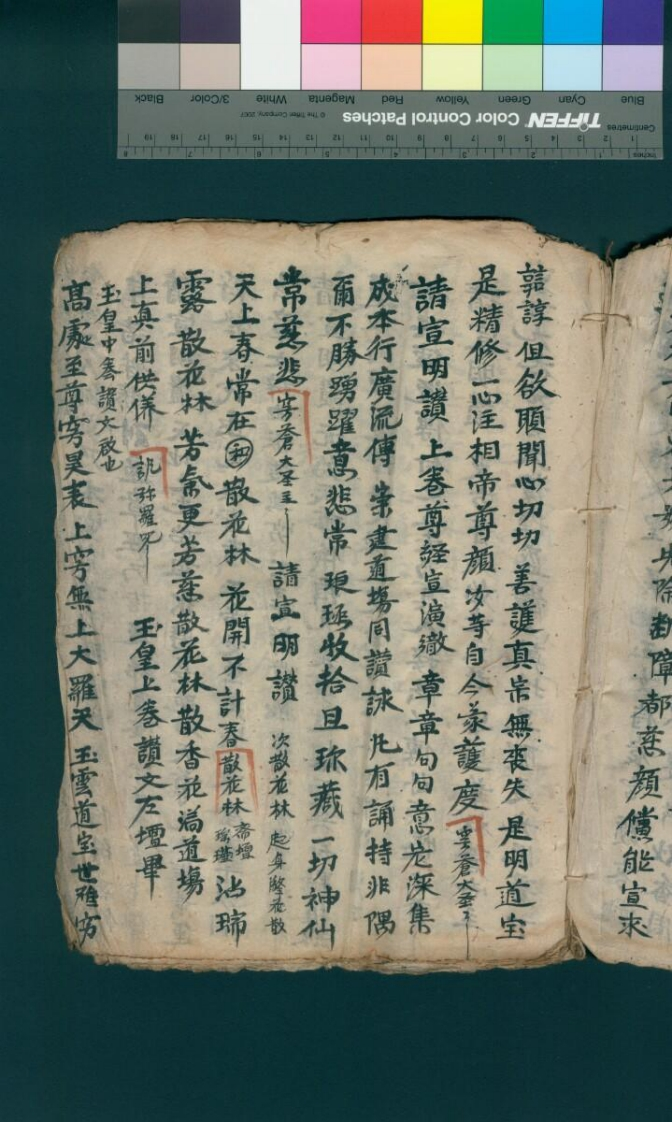 諄諄但欲願聞心切切善護真常無喪失是明道宝
是精修一心注相帝尊顏汝等自今蒙護度穹蒼大圣
請宣明讚上卷尊經宣演徹章章句句意宏深集
成本行廣流傳崇盡道塲同讚詠凡有誦持非隅
爾不勝踴躍意悲常琅琅收拾且珎藏一切神仙
常慈悲穹蒼大圣主請宣明讚次散花林起身𡘊花散
天上春常在和散花林花開不計春散花林斋壇瑞瑶沾瑞
露散花林芳氣更芳慈散花林散香花滿道塲
上真前供养訊弥羅咒玉皇上卷讚文左壇畢
玉皇中卷讚文啟也
高處至尊穹昊表上穹無上大羅天玉雲道宝世难穷
除斷障都慈顏儻能宣求
TIFFEN Color Control Patches
© The Tiffen Company, 2007
Blue Cyan Green Yellow Red Magenta White 3/Color Black
Centimetres
Inches